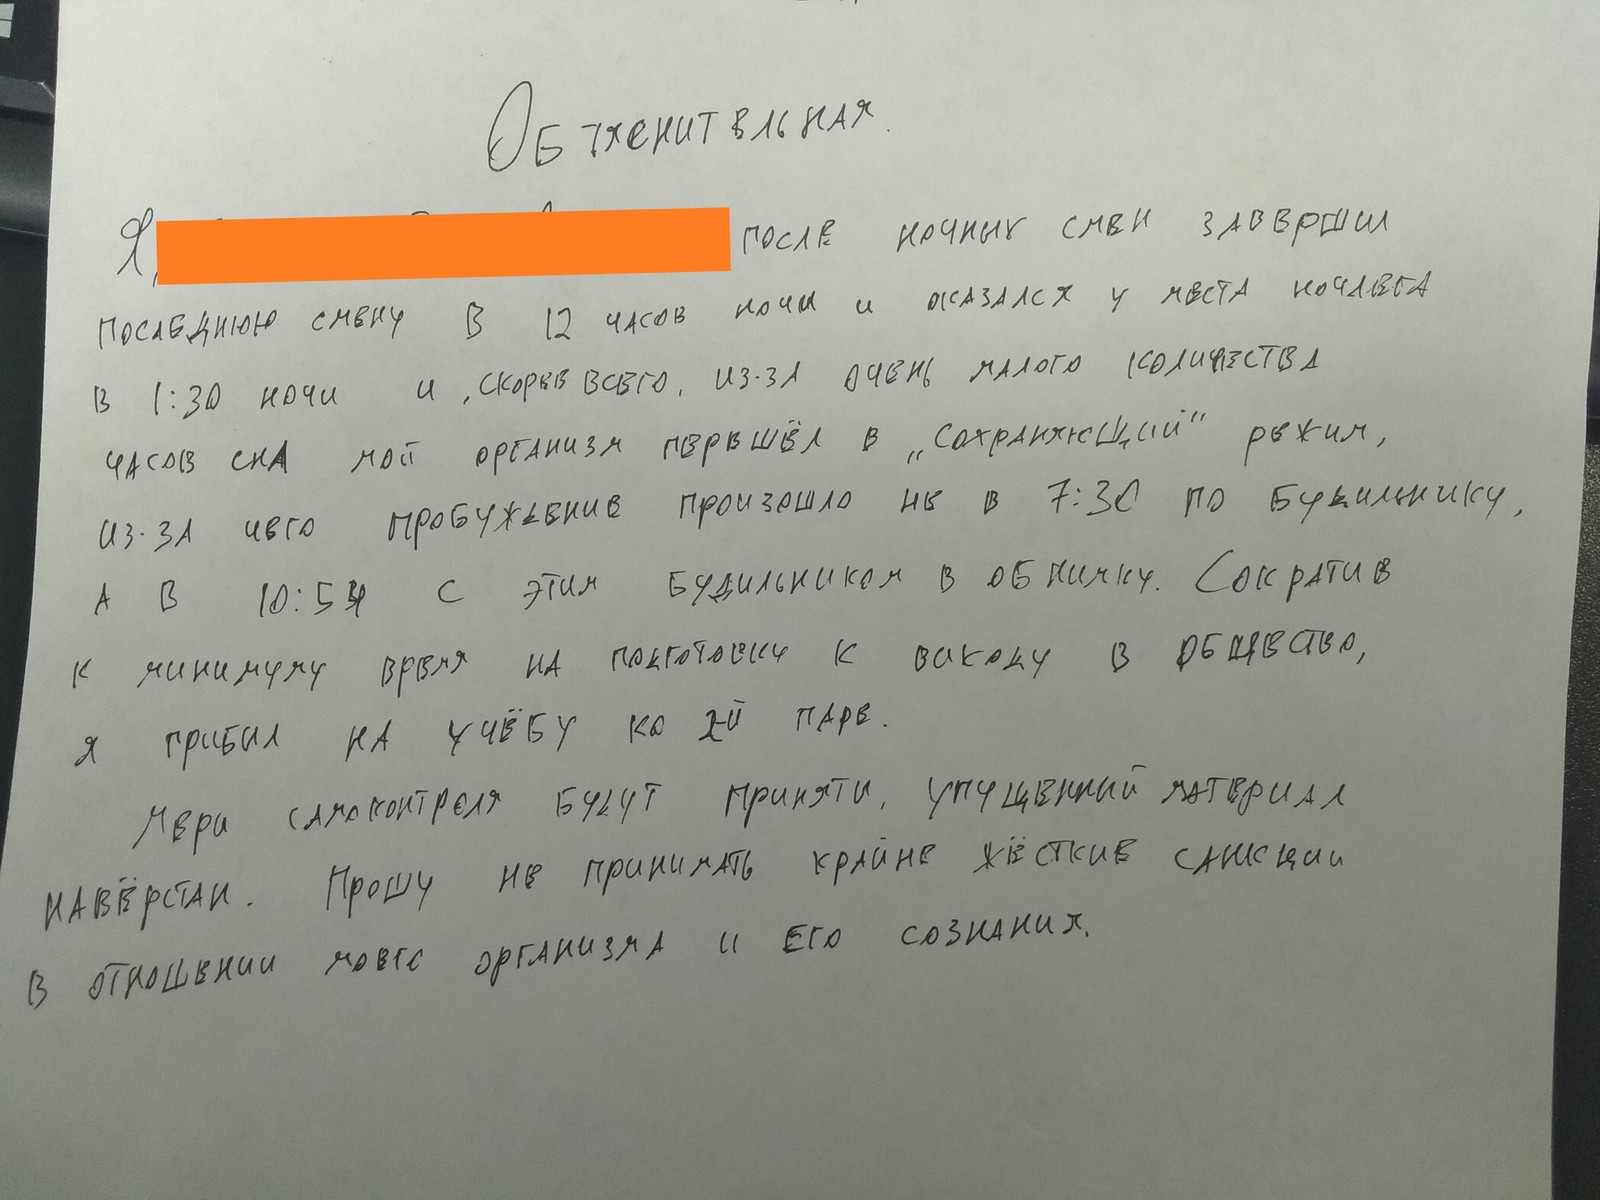 Объяснительная.
Я, после ночных смен завершил
последнюю смену в 12 часов ночи и оказался у места ночлега
в 1:30 ночи и, скорее всего, из-за очень малого количества
часов сна мой организм перешёл в „сохраняющий" режим,
из-за чего пробуждение произошло не в 7:30 по будильнику,
а в 10:54 с этим будильником в обнимку. Сократив
к минимуму время на подготовку к выходу в общество,
я прибыл на учёбу ко 2й паре.
Меры самоконтроля будут приняты, упущенный материал
навёрстан. Прошу не принимать крайне жёсткие санкции
в отношении моего организма и его сознания.